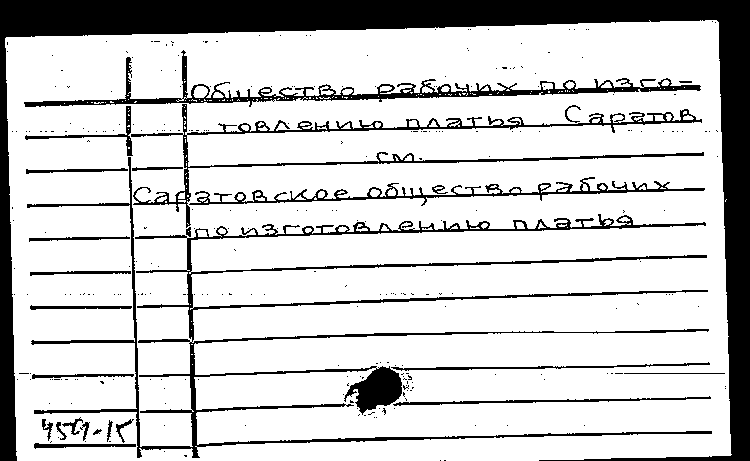 Общество рабочих по изго-
товлению платья. Саратов
см.
Саратовское общество рабочих
по изготовлению платья